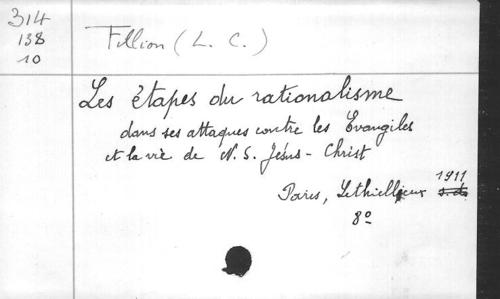 314
138
10
Fillion (L. C.)
Les étapes du rationalisme
dans ses attaques contre les Evangiles
et la vie de N. S. Jésus-Christ
Paris, Lethielleux 1911 s.d.
8º